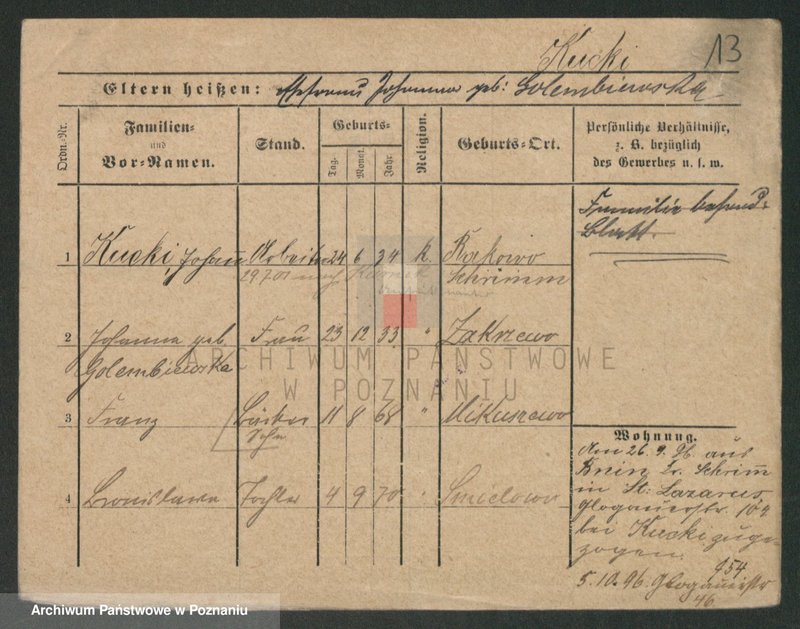 Kucki
13
Eltern heißen: Johanna geb: Golembiewska
Ordn.-Nr.
Familien-
und
Vor-Namen.
Stand.
Geburts-
Tag.
Monat.
Jahr.
Religion.
Geburts-Ort.
Persönliche Verhältnisse,
z. B. bezüglich
des Gewerbes u. s. w.
Familie besond.
Blatt.
1 Kucki, Johann Arbeiter 24 6 34 k. Rakowo
29 7 01 nach Kurnik Schrimm
2 Johanna geb. Frau 23 12 33 " Zakrzewo
Golembiewska
3 Franz Bäcker 11 8 68 " Mikuszewo
Sohn
4 Bronislawa Tochter 4 9 70 " Smielowo
Wohnung.
Am 26. 9. 96 aus
Bnin Kr. Schrimm
in St. Lazarus,
Glogauerstr. 104
bei Kucki zuge-
zogen.
954
5.10.96 Glogauerstr
46.
ARCHIWUM PAŃSTWOWE
W POZNANIU
Archiwum Państwowe w Poznaniu